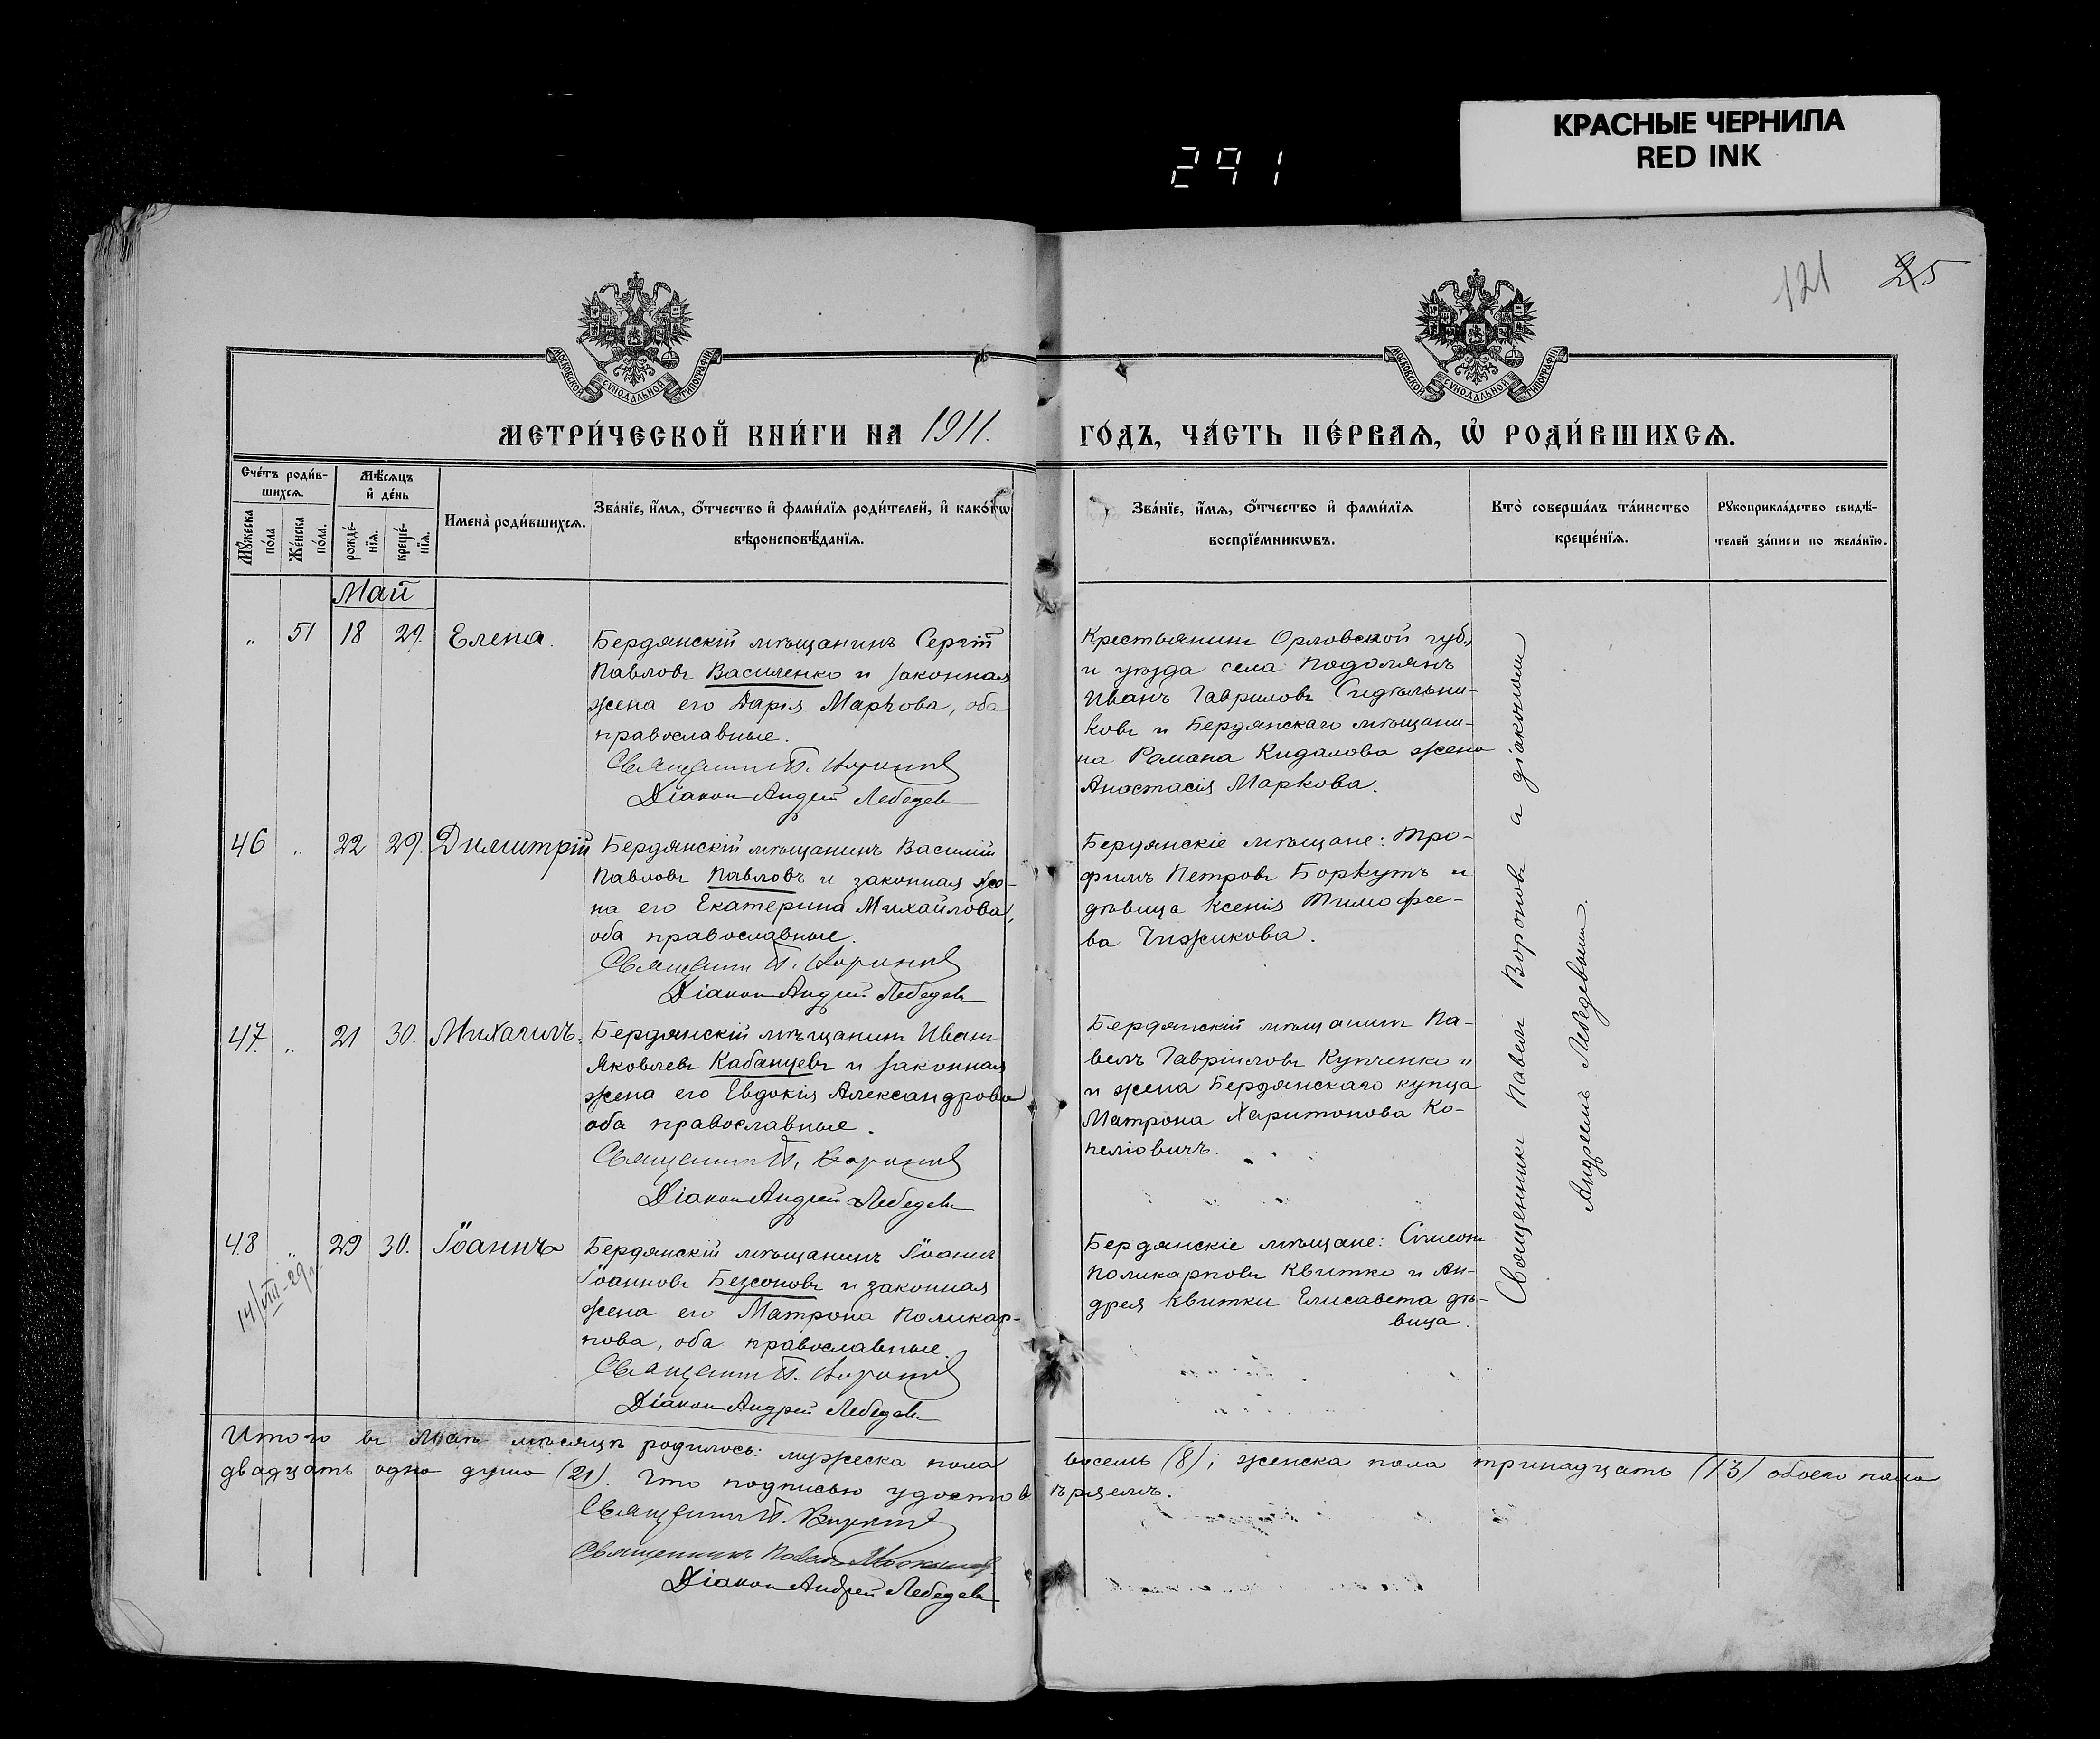 КРАСНЫЕ ЧЕРНИЛА
RED INK
291
121
25
МОСКОВСКОЙ СУНОДАЛЬНОЙ ТИПОГРАФІИ
МОСКОВСКОЙ СУНОДАЛЬНОЙ ТИПОГРАФІИ
МЕТРИ́ЧЕСКОЙ КНИ́ГИ НА 1911.
ГО́ДЪ, ЧА́СТЬ ПЕ́РВАЯ, Ѡ РОДИ́ВШИХСЯ.
Сче́тъ роди́в-
шихся.
Мѣ́сяцъ
и де́нь
Му́жеска
по́ла
Же́нска
по́ла.
рожде́-
нія.
креще́-
нія.
Имена̀ роди́вшихся.
Зва́нїе, и́мя, о́тчество и фами́лїя роди́телей, и како́гѡ
вѣроисповѣ́данїя.
Зва́нїе, и́мя, о́тчество и фами́лїя
воспрїе́мникѡвъ.
Кто̀ соверша́лъ та́инство
креще́нїя.
Рукоприкла́дство свидѣ́-
телей за́писи по жела́нїю.
Май
" 51 18 29. Елена.
Бердянскій мѣщанинъ Сергій
Павловъ Василенко и законная
жена его Дарія Маркова, оба
православные.
Священникъ П. Вороновъ
Діаконъ Андрей Лебедевъ
Крестьянинъ Орловской губ.,
и уѣзда села Подолянъ
Иванъ Гавриловъ Сидѣльни-
ковъ и Бердянскаго мѣщани-
на Романа Кидалова жена
Анастасія Маркова.
46 " 22 29. Димитрій
Бердянскій мѣщанинъ Василій
Павловъ Павловъ и законная же-
на его Екатерина Михайлова,
оба православные.
Священникъ П. Вороновъ
Діаконъ Андрей Лебедевъ
Бердянскіе мѣщане: Тро-
фимъ Петровъ Боркутъ и
дѣвица Ксенія Тимофее-
ва Чижикова.
47. " 21 30. Михаилъ.
Бердянскій мѣщанинъ Иванъ
Яковлевъ Кабанцевъ и законная
жена его Евдокія Александрова
оба православные.
Священникъ П. Вороновъ
Діаконъ Андрей Лебедевъ
Бердянскій мѣщанинъ Па-
велъ Гавріиловъ Купченко и
и жена Бердянскаго купца
Матрона Харитонова Ко-
пеліовичъ.
48 " 29 30. Іоаннъ
14/VIII-29г.
Бердянскій мѣщанинъ Іоаннъ
Іоанновъ Безсоновъ и законная
жена его Матрона Поликар-
пова, оба православные.
Священникъ П. Вороновъ
Діаконъ Андрей Лебедевъ
Бердянскіе мѣщане: Симеонъ
Поликарповъ Квитко и Ан-
дрея Квитки Елисавета дѣ-
вица.
Священникъ Павелъ Вороновъ а діакономъ
Андреемъ Лебедевымъ.
Итого въ Маѣ мѣсяцѣ родилось: мужеска пола восемь (8); женска пола тринадцать (13) обоего пола
двадцать одна душа (21). Что подписью удостовѣряемъ.
Священникъ П. Вороновъ
Священникъ Павелъ
Діаконъ Андрей Лебедевъ